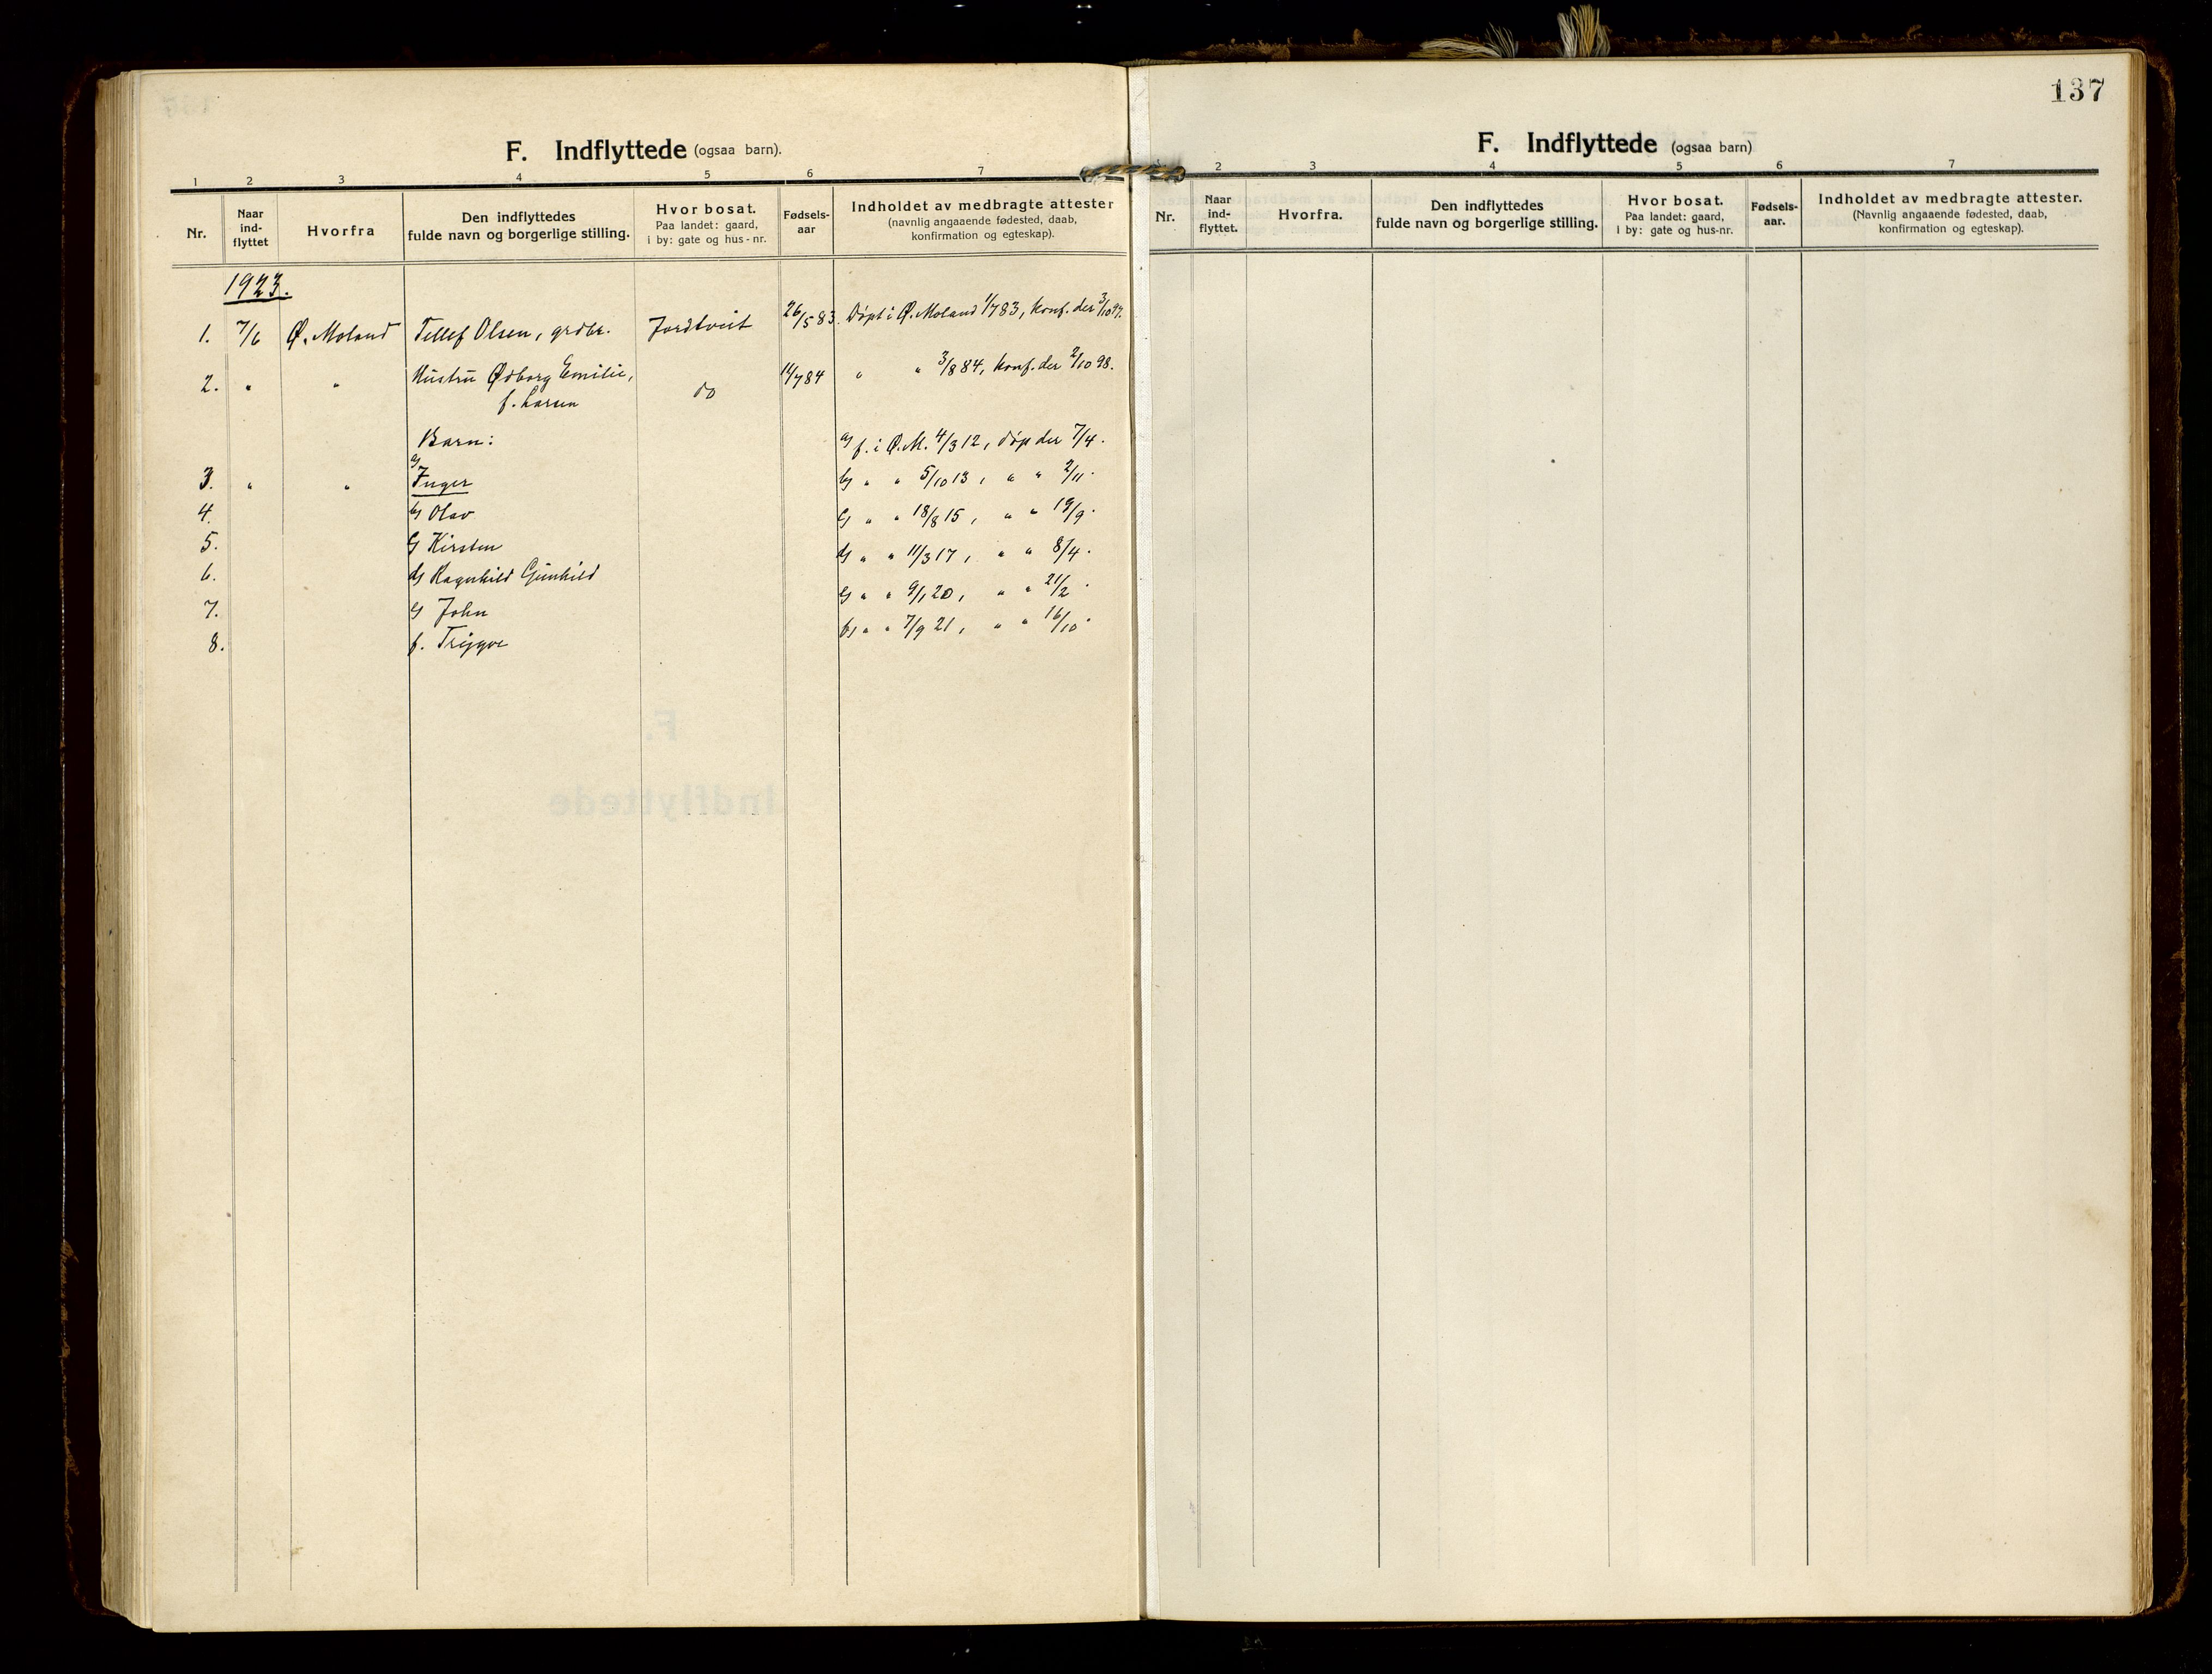 137
F. Indflyttede (ogsaa barn).
1 2 3 4 5 6 7
Nr. Naar ind-flyttet Hvorfra Den indflyttedes fulde navn og borgerlige stilling. Hvor bosat. Paa landet: gaard, i by: gate og hus-nr. Fødsels-aar Indholdet av medbragte attester (navnlig angaaende fødested, daab, konfirmation og egteskap).
1923.
1. 7/6 Ø. Moland Tellef Olsen, grdbr. Jordtveit 26/5 83. Døpt i Ø. Moland 1/7 83, konf. der 3/10 97.
2. " " Hustru Ødborg Emilie, do 14/7 84 " " 3/8 84, konf. der 2/10 98.
f. Larsen
Barn: a) f. i Ø.M. 4/3 12, døp der 7/4.
3. " " a) Inger b) " " 5/10 13, " " 2/11.
4. b) Olav c) " " 18/8 15, " " 19/9.
5. c) Kirsten d) " " 11/3 17, " " 8/4.
6. d) Ragnhild Gunhild e) " " 9/1 20, " " 21/2.
7. e) John f) " " 7/9 21, " " 16/10.
8. f. Trygve
F.
Indflyttede
F. Indflyttede (ogsaa barn)
2 3 4 5 6 7
Nr. Naar ind-flyttet. Hvorfra. Den indflyttedes fulde navn og borgerlige stilling. Hvor bosat. Paa landet: gaard, i by: gate og hus-nr. Fødsels-aar. Indholdet av medbragte attester. (Navnlig angaaende fødested, daab, konfirmation og egteskap).